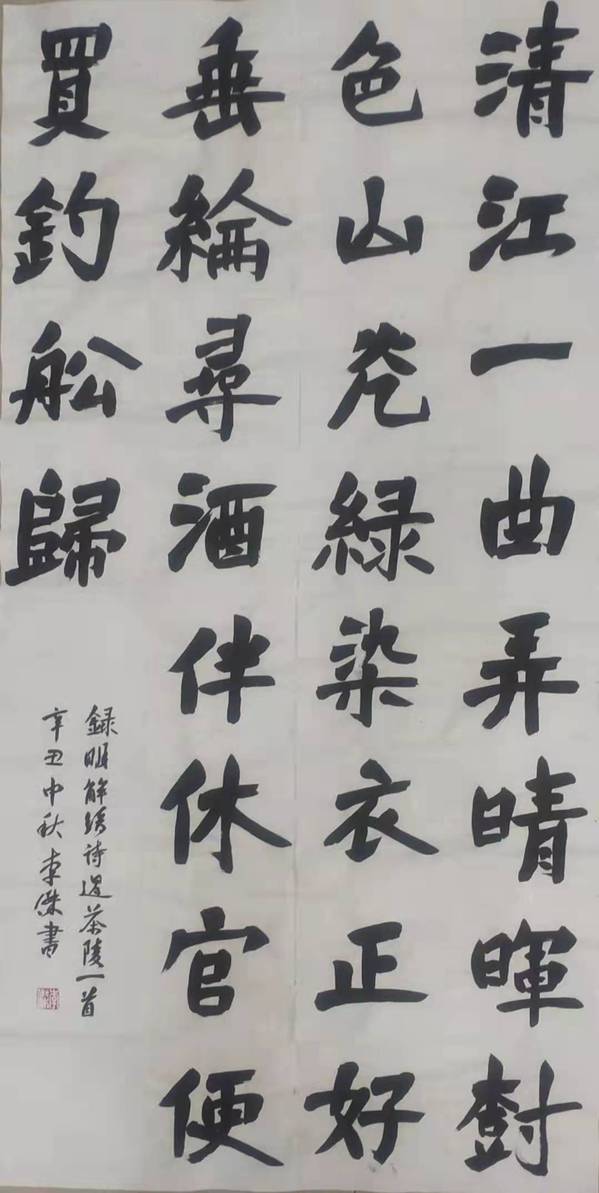 清江一曲弄晴暉樹
色山光綠染衣正好
垂綸尋酒伴休官便
買釣舩歸
録明解縉詩過茶陵一首
辛丑中秋李傑書